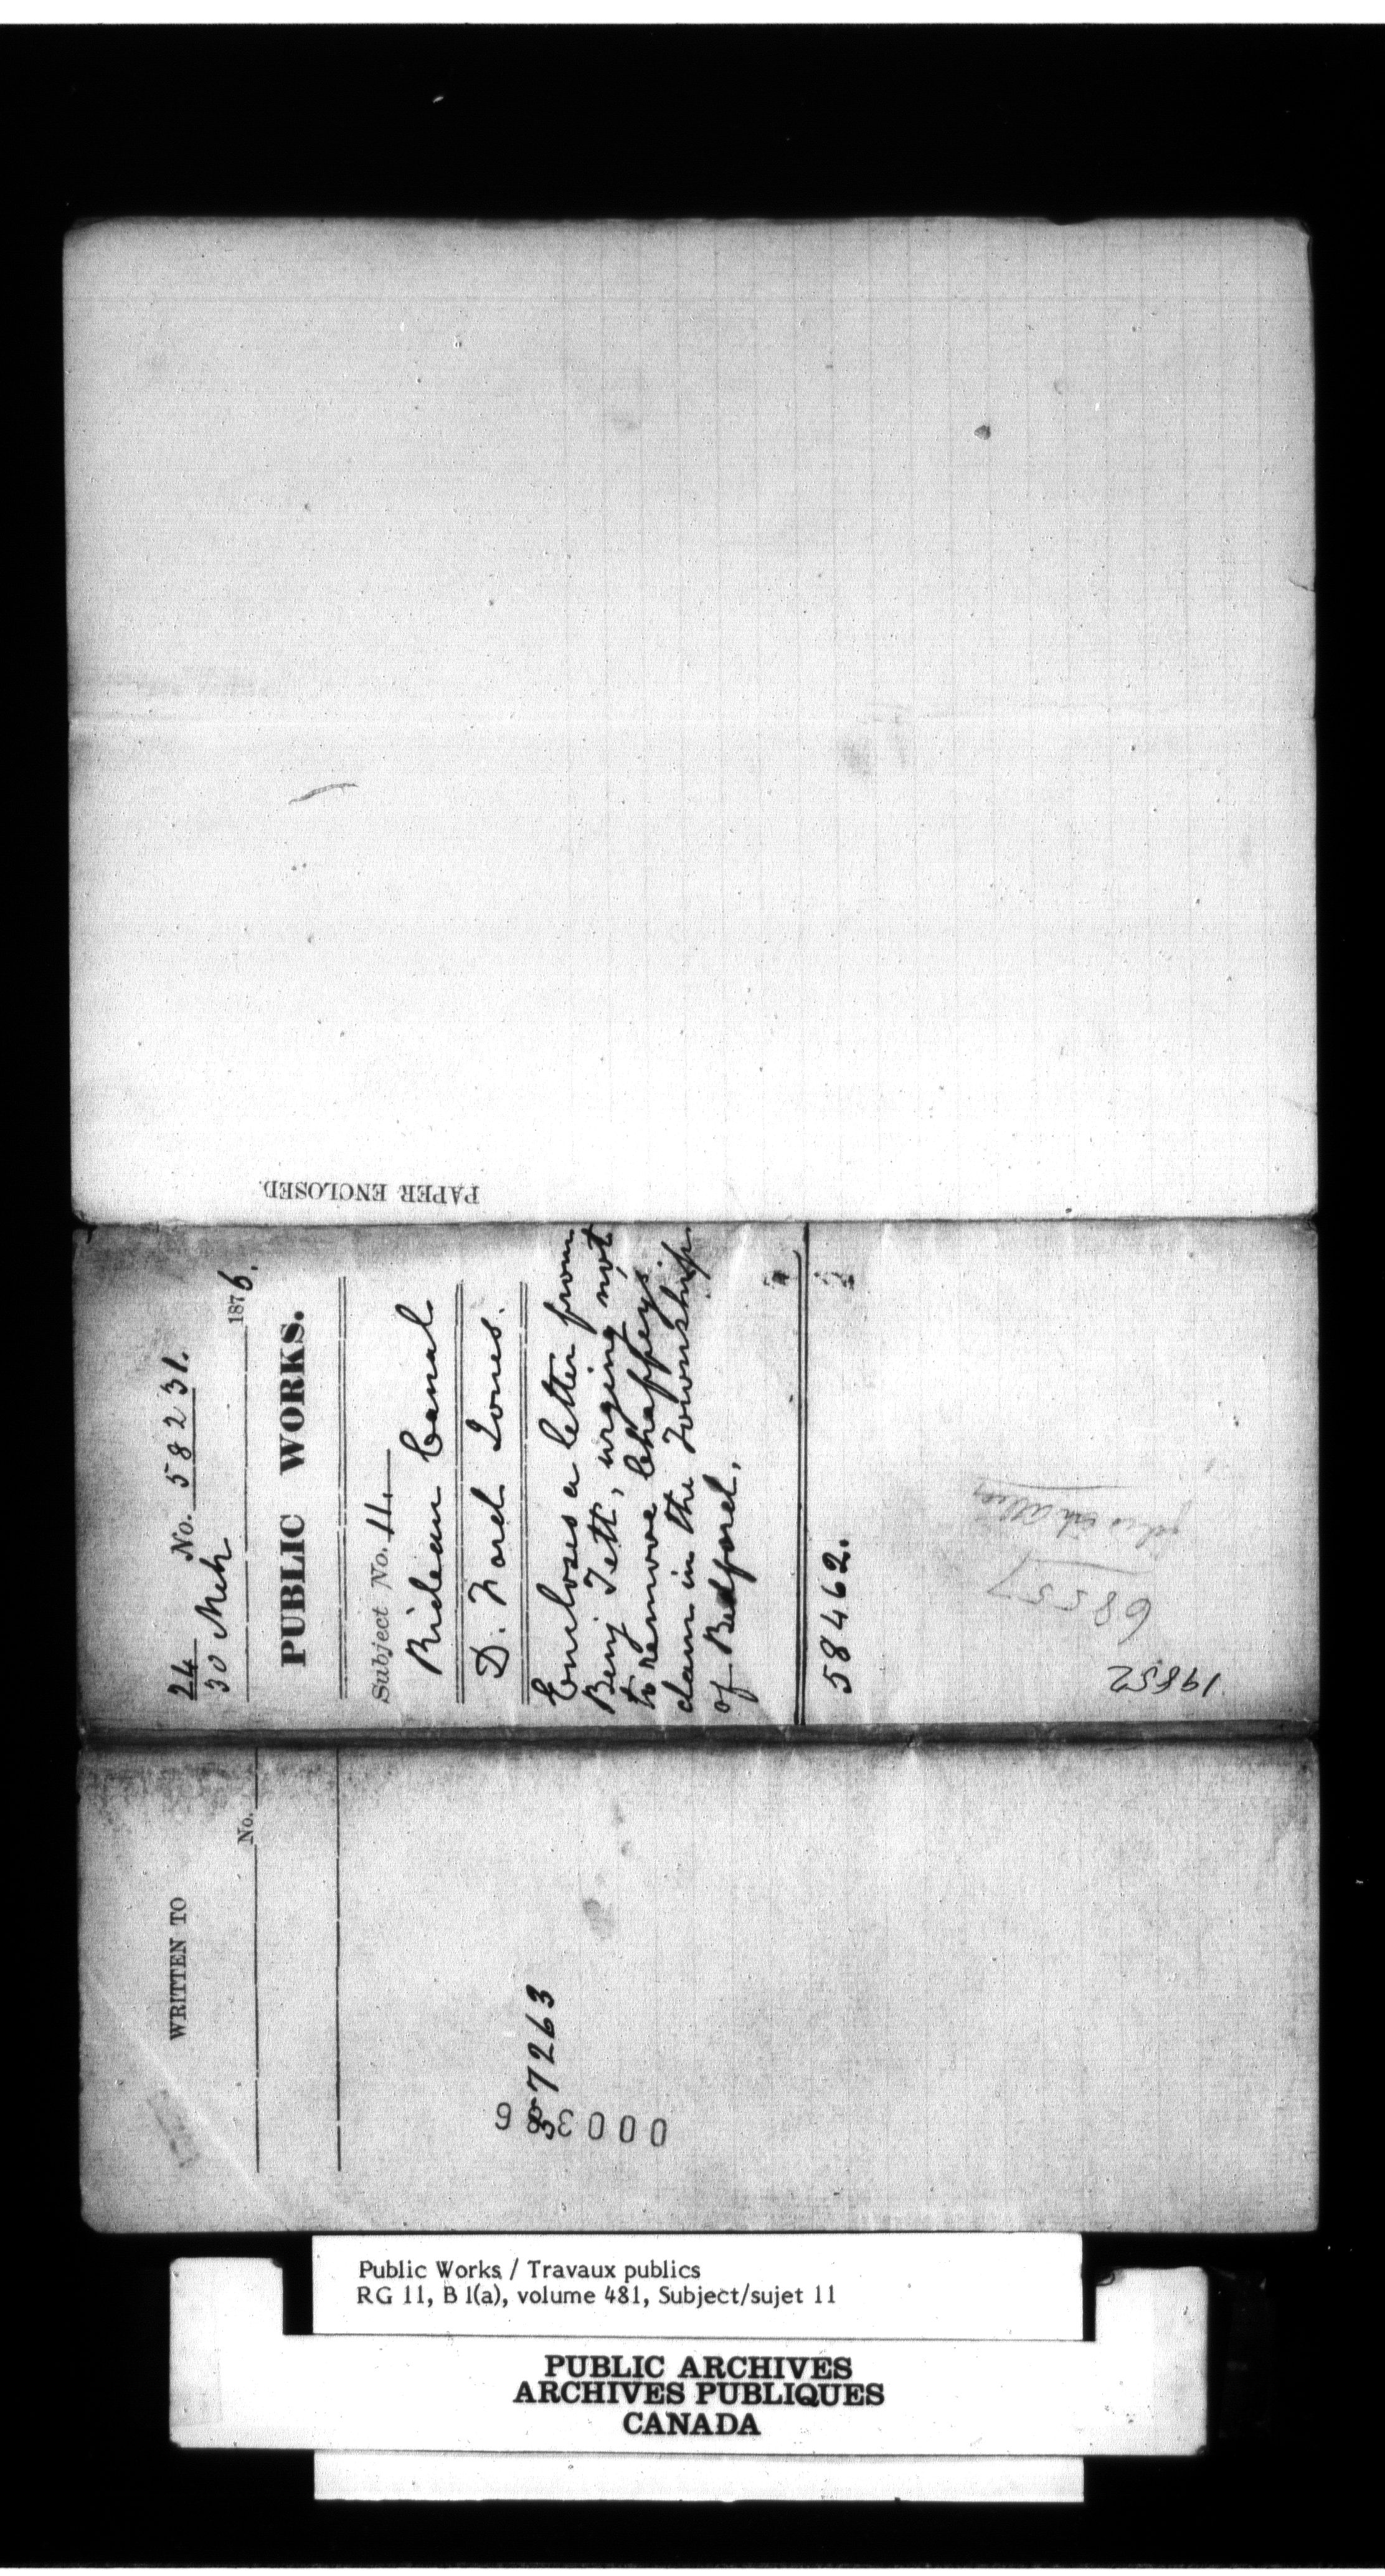 PAPER ENCLOSED.
24 No. 58231.
30 Mch 1876.
PUBLIC WORKS.
Subject No. 11.
Rideau Canal
D. Ford Jones.
Encloses a letter from
Benj Tett, urging not
to remove Chaffeys
dam in the Township
of Bedford.
58462.
68557
19852
WRITTEN TO
No.
57263
Public Works / Travaux publics
RG 11, B 1(a), volume 481, Subject/sujet 11
PUBLIC ARCHIVES
ARCHIVES PUBLIQUES
CANADA